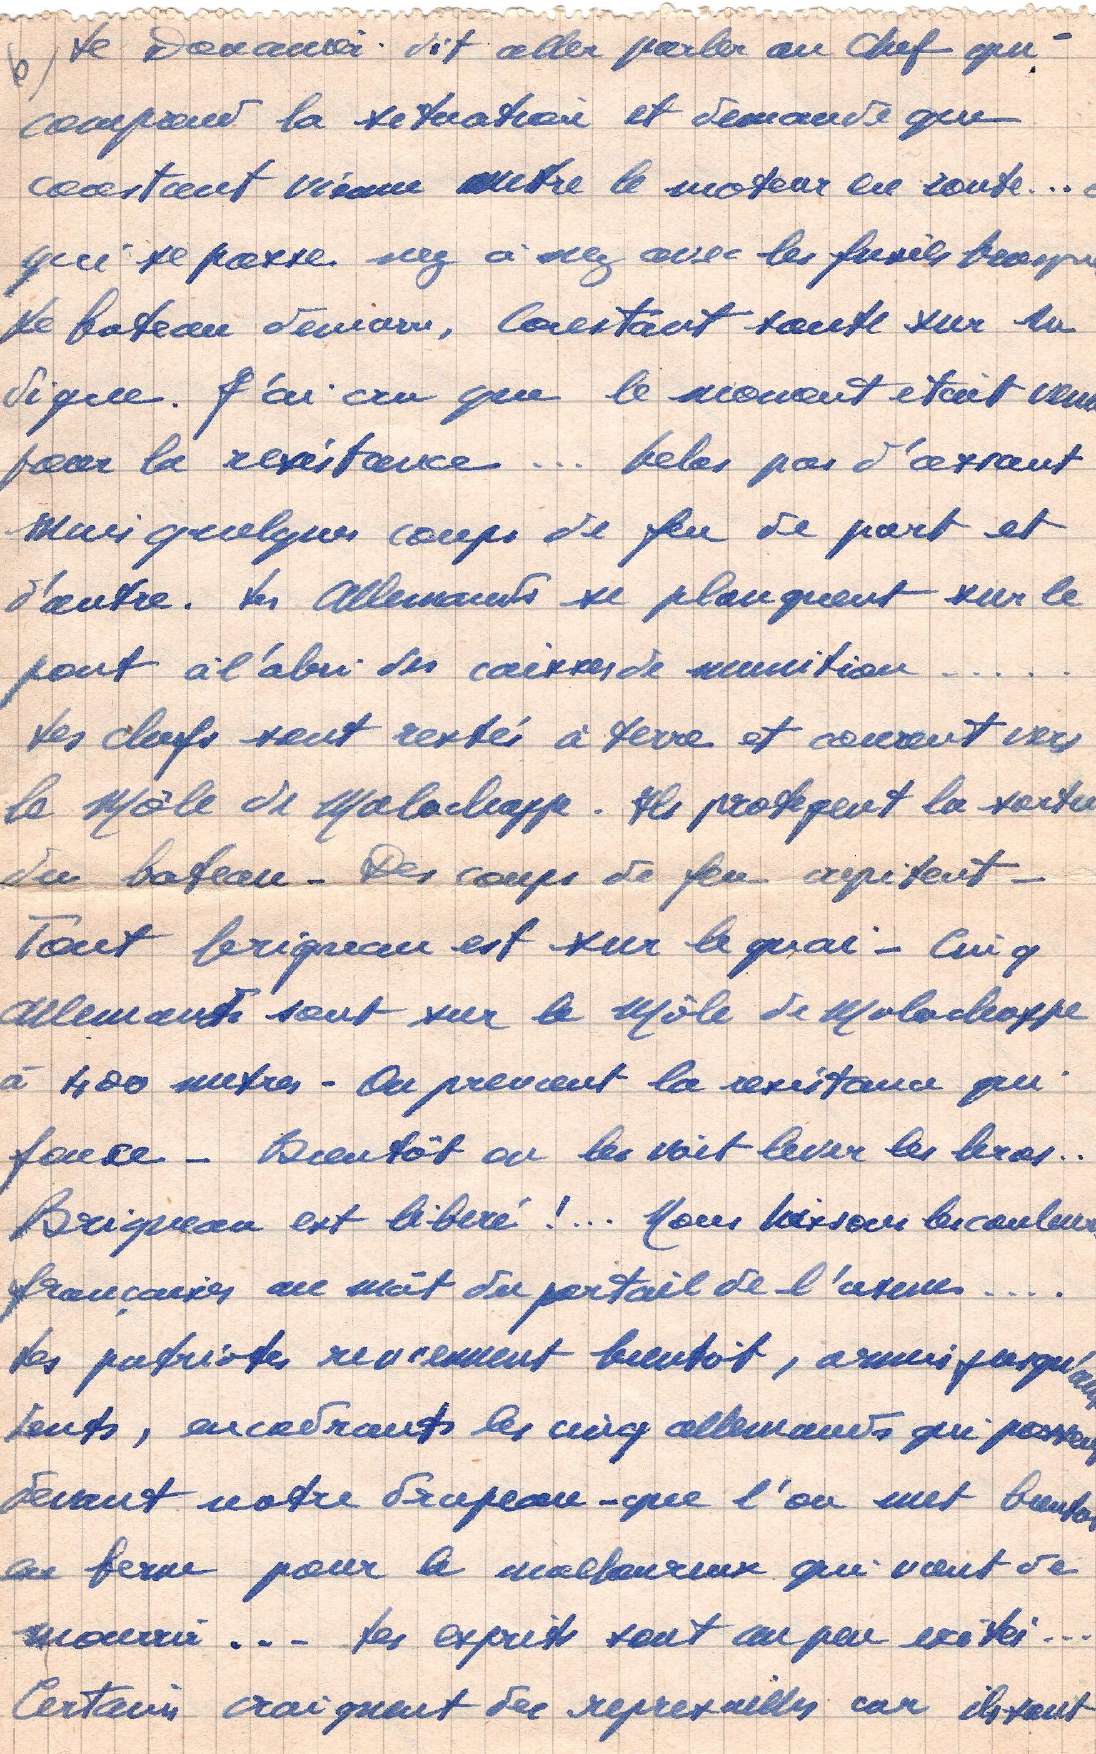 6) Le Douanier dit aller parler au Chef qui
comprend la situation et demande que
Constant vienne mettre le moteur en route...
qui se passe. nez à nez avec les fusils braqués
Le bateau démarre, Constant saute sur la
digue. J'ai cru que le moment était venu
pour la resistance ... helas pas d'assaut
Mais quelques coups de feu de part et
d'autre. Les Allemands se planquent sur le
pont à l'abri des caisses de munition .....
Les chefs sont restés à terre et courent vers
le Môle de Malachappe. Ils protegent la sortie
du bateau - Des coups de feu crepitent -
Tout Brigneau est sur le quai - Cinq
Allemands sont sur le Môle de Malachappe
à 400 metres - On previent la resistance qui
fonce - Bientôt on les voit lever les bras..
Brigneau est libéré !... Nous hissons les couleurs
françaises au mât du portail de l'usine ....
Les patriotes reviennent bientôt, armés jusqu'aux
dents, encadrants les cinq allemands qui passent
devant notre drapeau - que l'on met bientôt
en berne pour le malheureux qui vient de
mourir ... Les esprits sont un peu excités ...
Certains craignent des represailles car ils sont